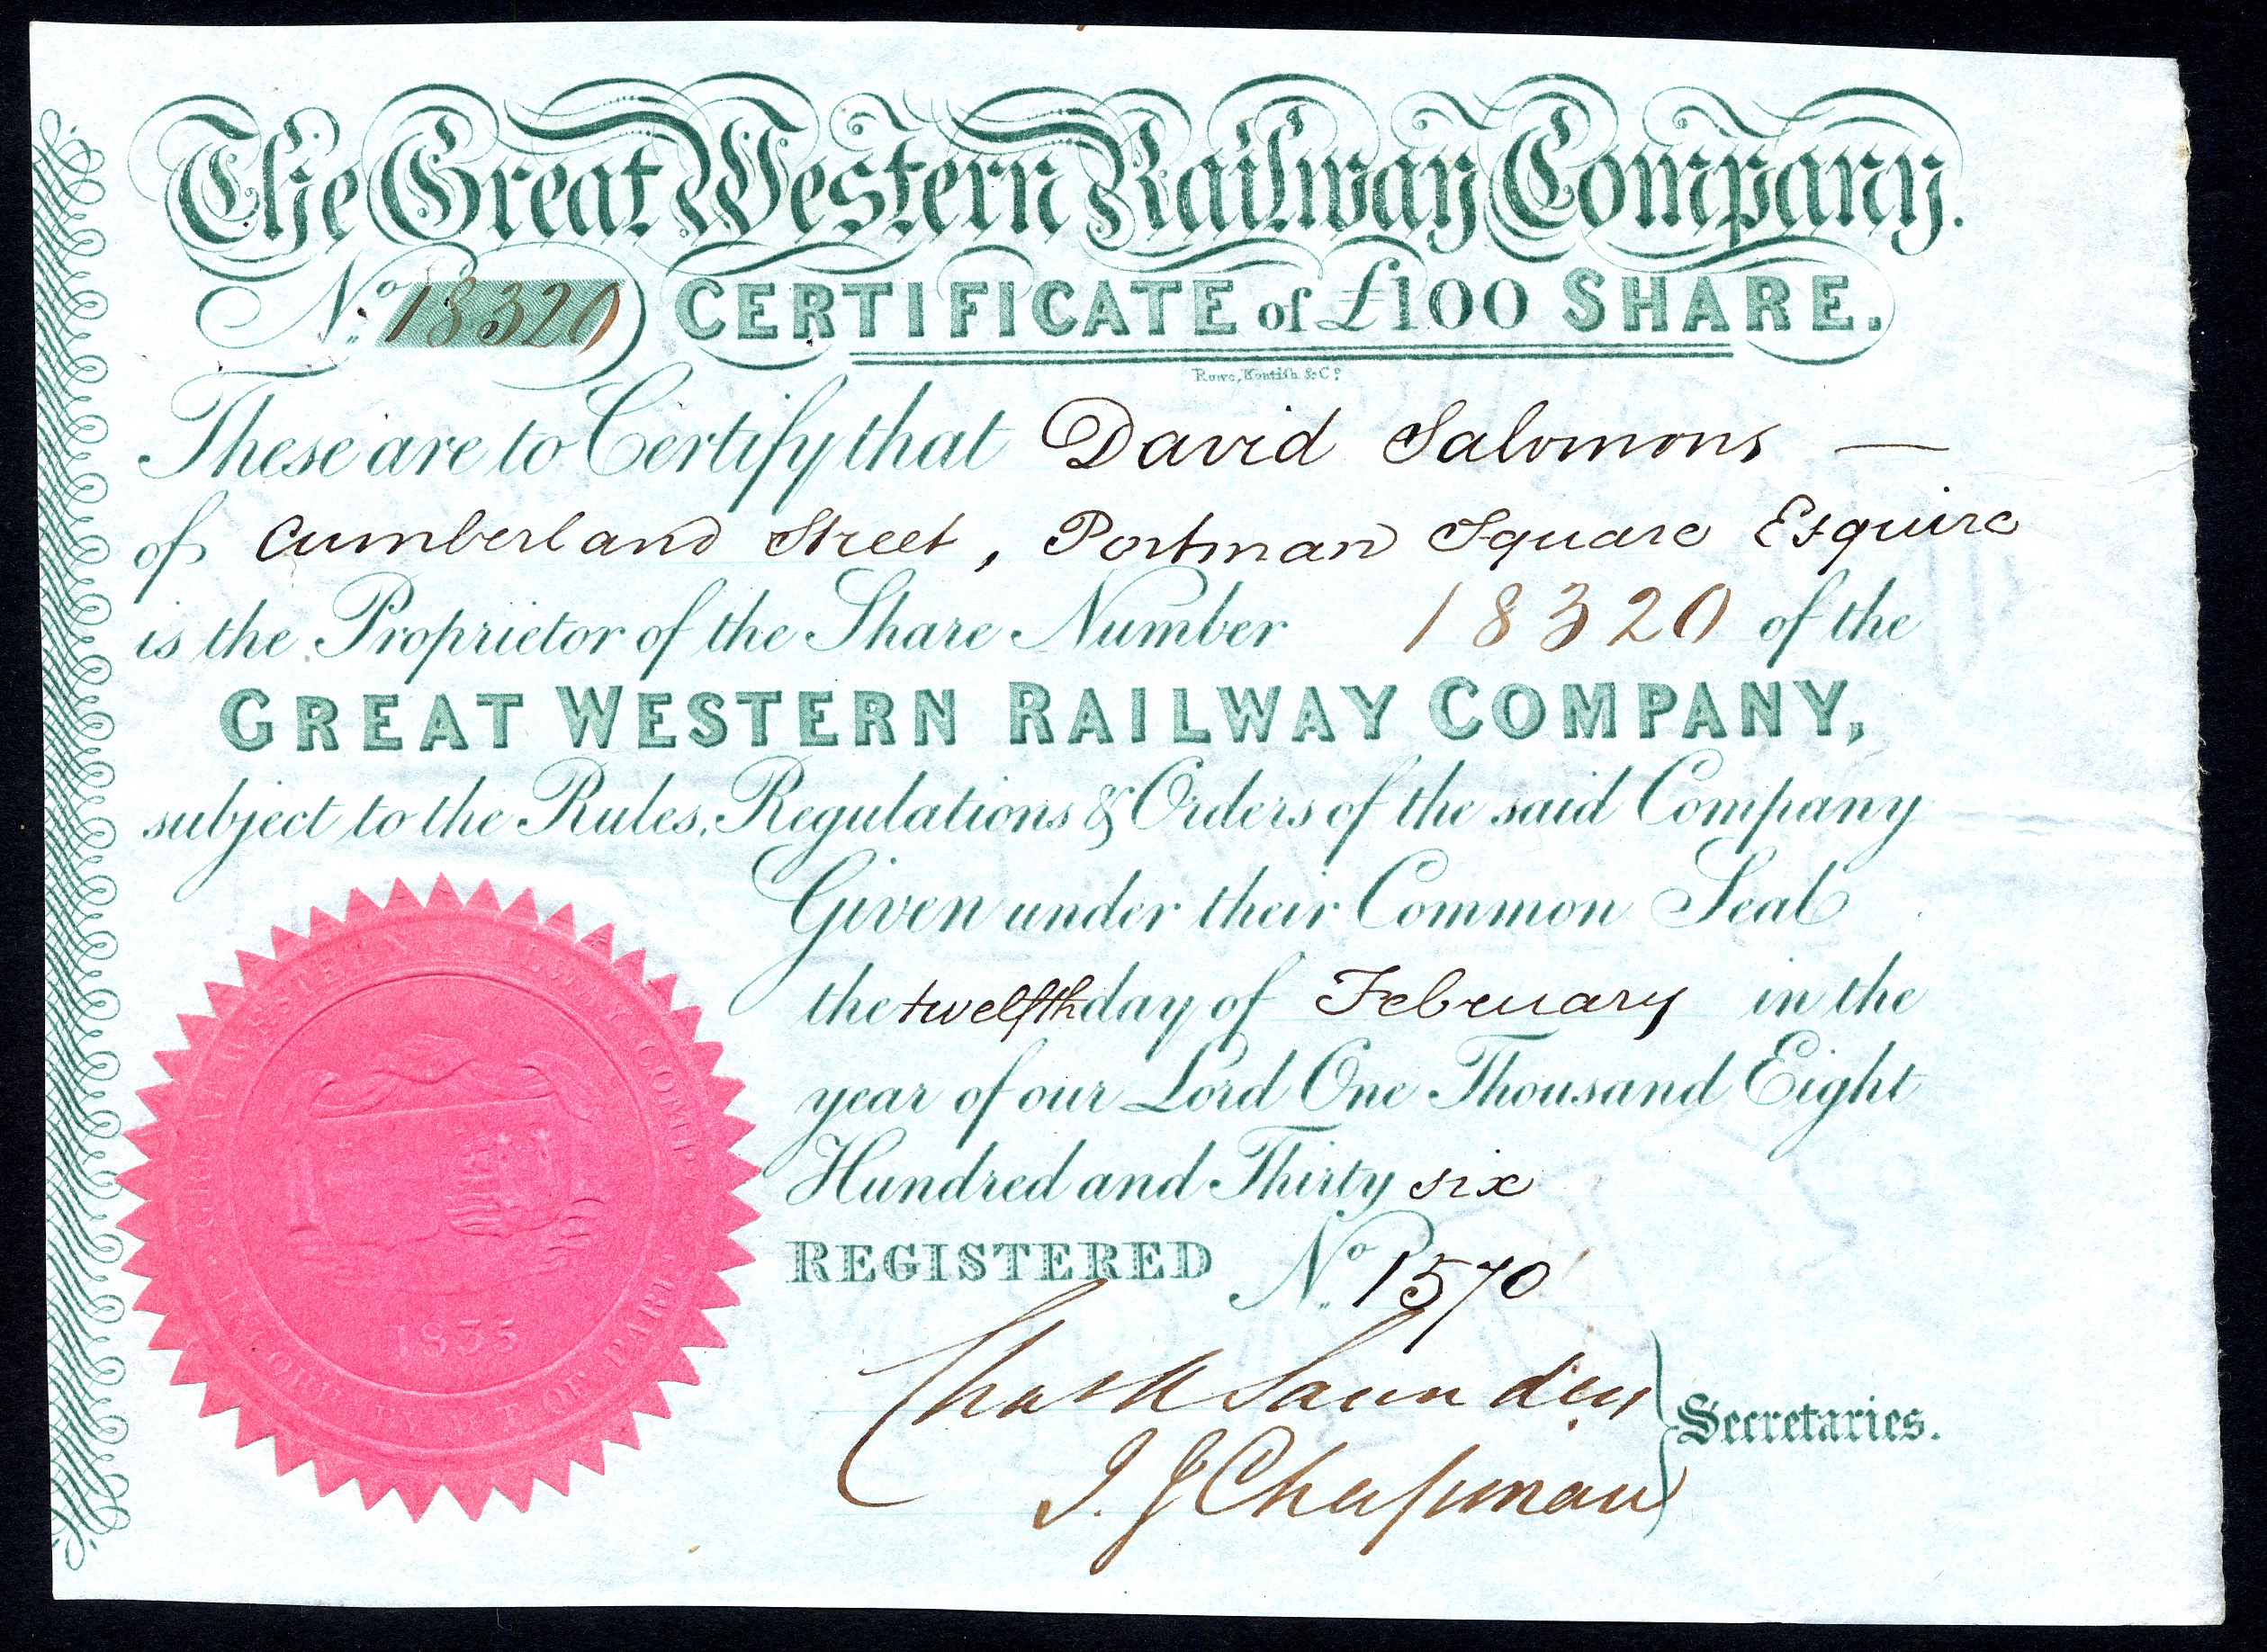 The Great Western Railway Company.
No. 18320 CERTIFICATE of £100 SHARE.
Rowe, Kentish & Co.
These are to Certify that David Salomons —
of Cumberland Street, Portman Square Esquire
is the Proprietor of the Share Number 18320 of the
GREAT WESTERN RAILWAY COMPANY,
subject to the Rules, Regulations & Orders of the said Company
Given under their Common Seal
the twelfth day of February in the
year of our Lord One Thousand Eight
Hundred and Thirty six
REGISTERED No. 1570
Chas A Saunders
J. G Chapman
Secretaries.
GREAT WESTERN RAILWAY COMP.
INCORP. BY ACT OF PARL.
1835